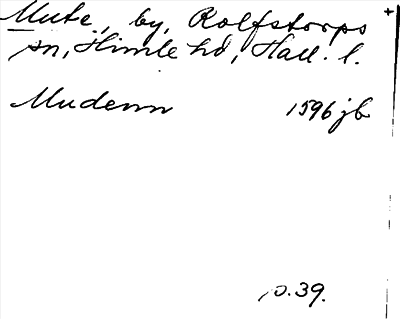 Mute, by, Rolfstorps
sn, Himle hd, Hall. l.
Mudenn 1596 jb
p. 39.